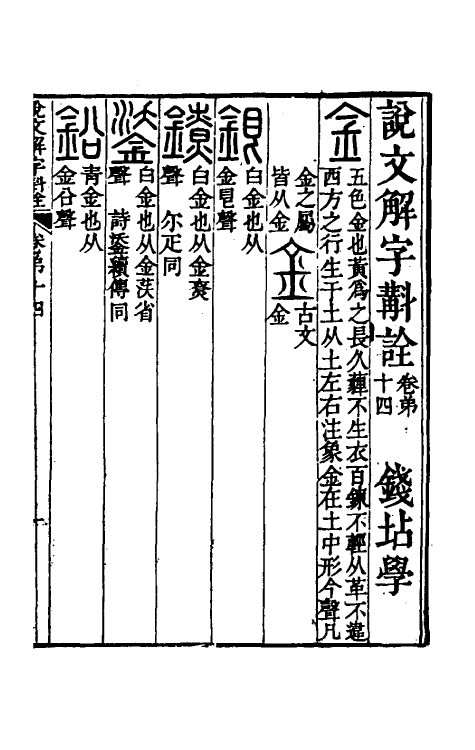 說文解字斠詮 卷弟十四 錢坫學
金 五色金也黃爲之長久薶不生衣百鍊不輕从革不違
西方之行生于土从土左右注象金在土中形今聲凡
金之屬
皆从金 金 古文
金
銀 白金也从
金㫐聲
鐐 白金也从金尞
聲 尒疋同
鋈 白金也从金茨省
聲 詩鋈續傳同
鉛 青金也从
金㕣聲
說文解字斠詮 卷弟十四 一